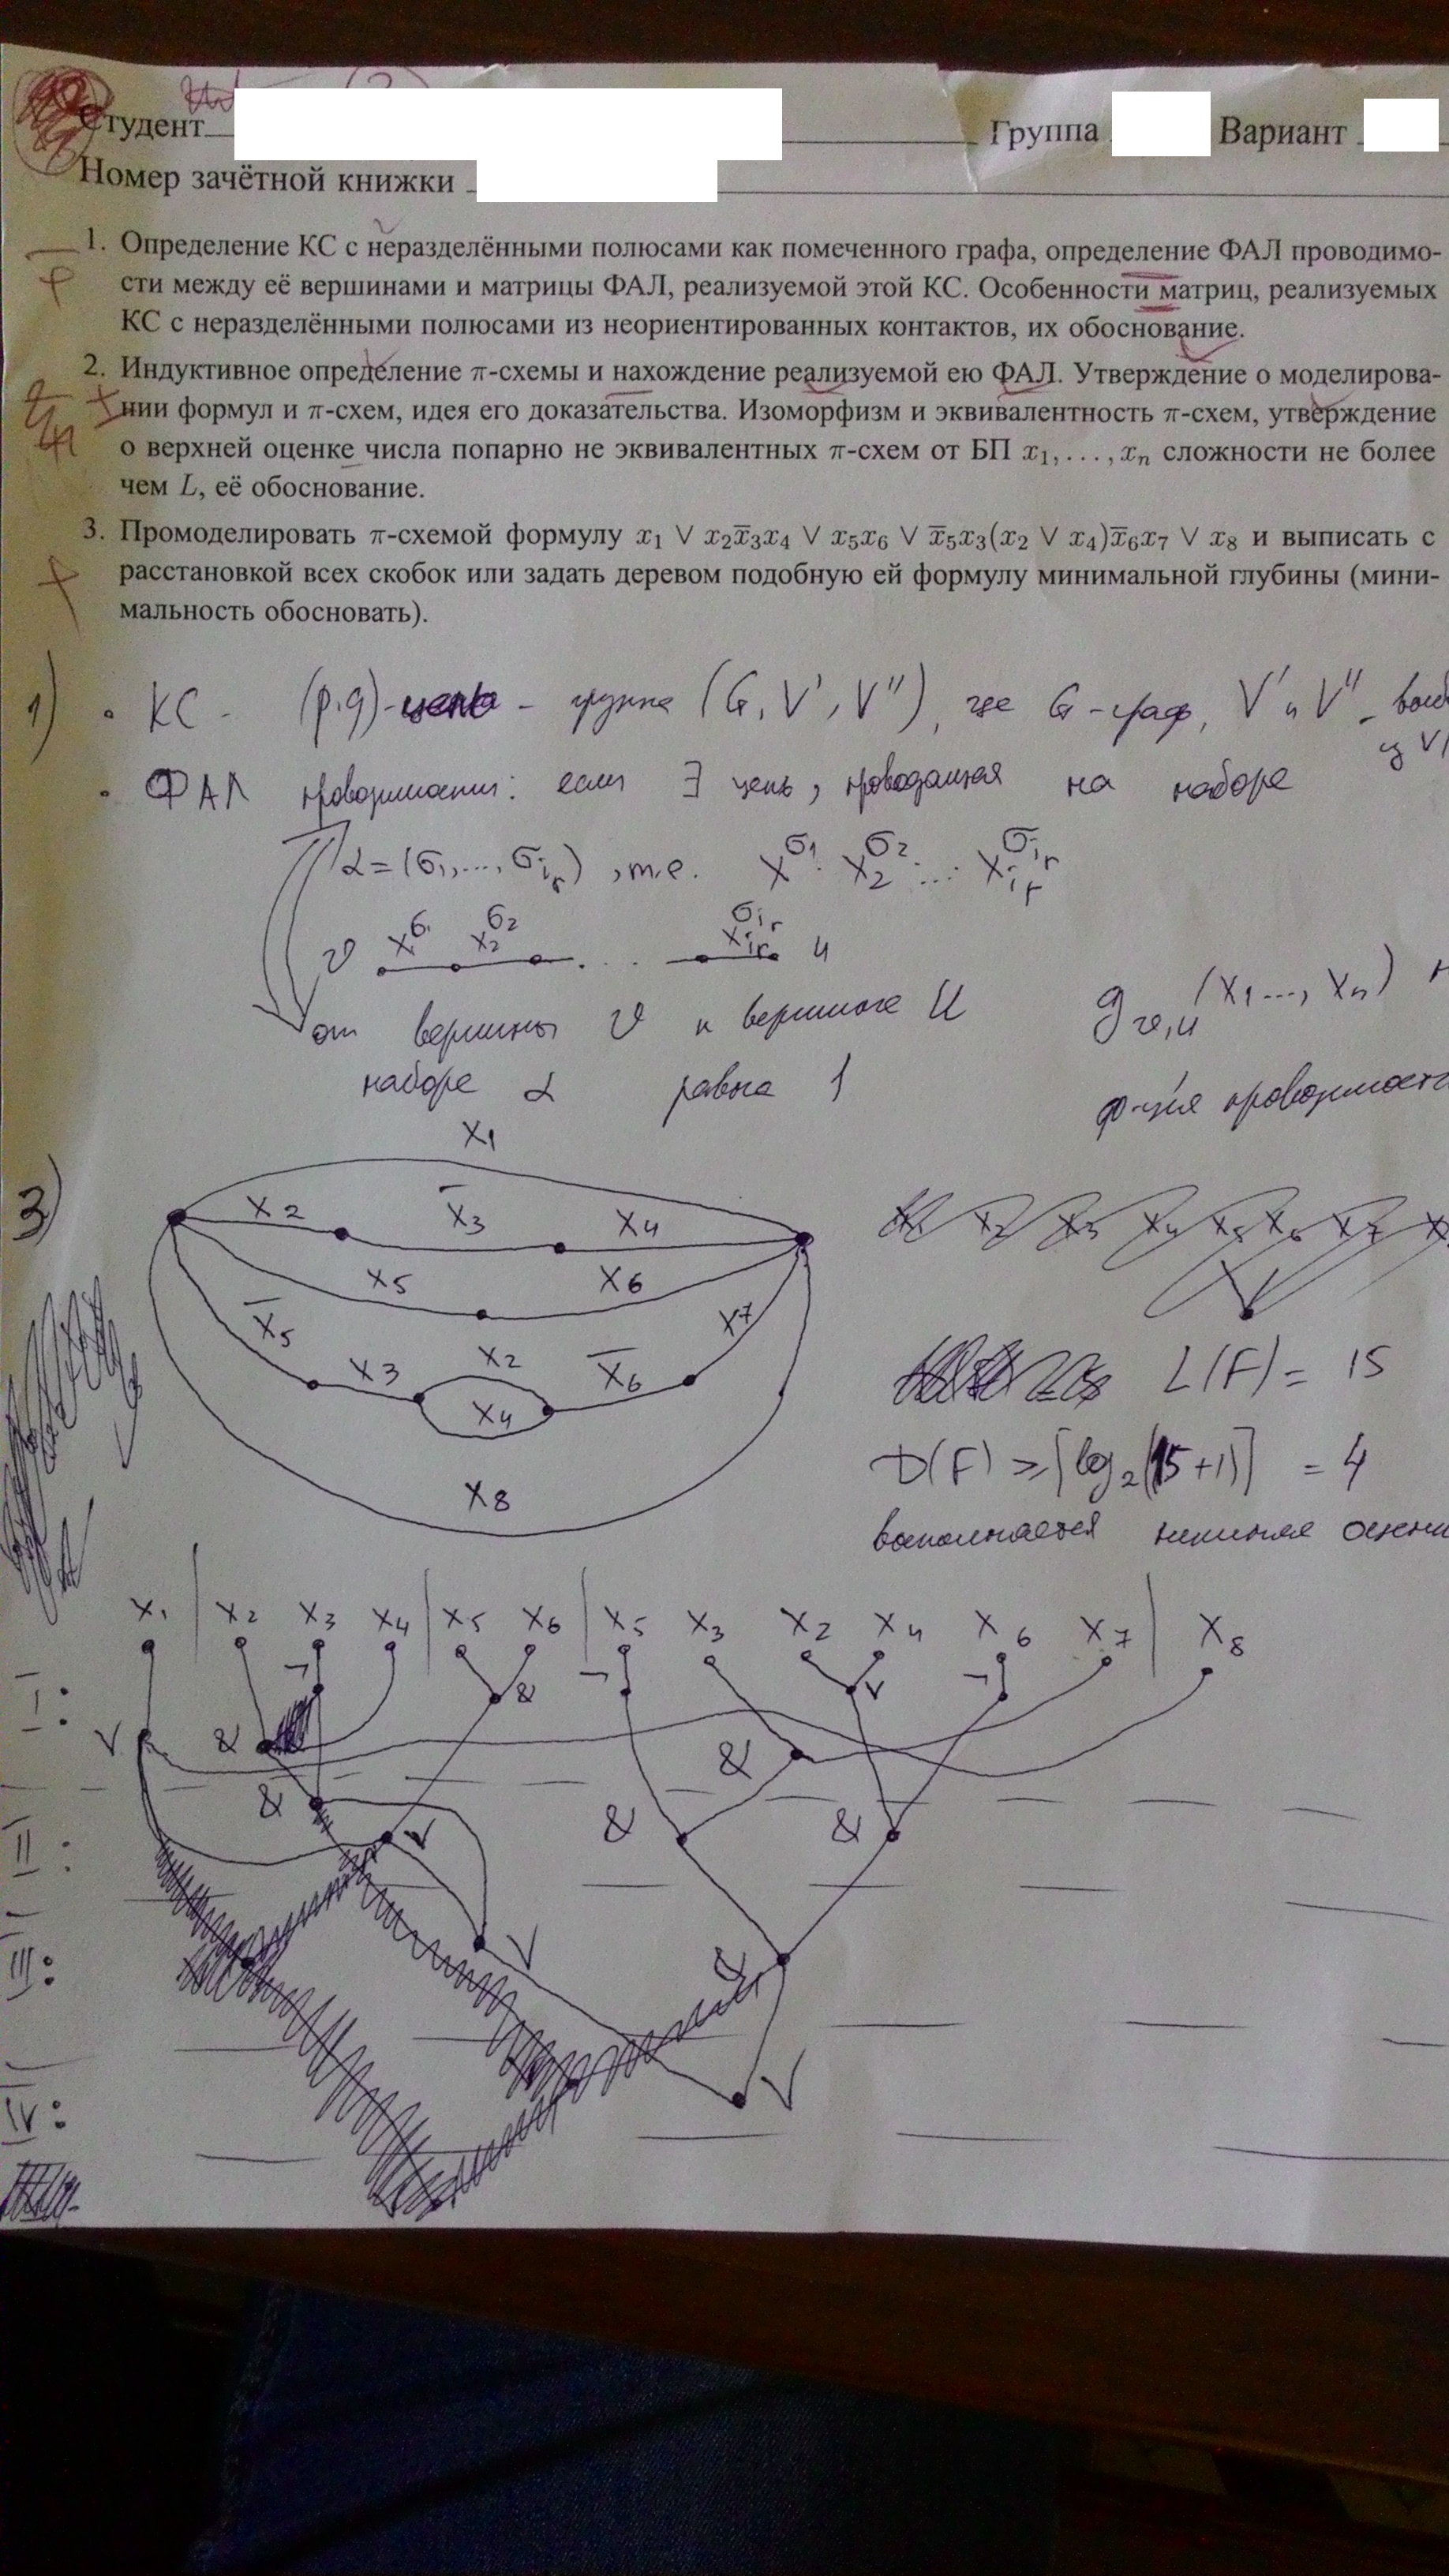 Студент
Группа
Вариант
Номер зачётной книжки
1. Определение КС с неразделёнными полюсами как помеченного графа, определение ФАЛ проводимо-
сти между её вершинами и матрицы ФАЛ, реализуемой этой КС. Особенности матриц, реализуемых
КС с неразделёнными полюсами из неориентированных контактов, их обоснование.
2. Индуктивное определение π-схемы и нахождение реализуемой ею ФАЛ. Утверждение о моделирова-
нии формул и π-схем, идея его доказательства. Изоморфизм и эквивалентность π-схем, утверждение
о верхней оценке числа попарно не эквивалентных π-схем от БП x₁, . . . , xₙ сложности не более
чем L, её обоснование.
3. Промоделировать π-схемой формулу x₁ ∨ x₂x̅₃x₄ ∨ x₅x₆ ∨ x̅₅x₃(x₂ ∨ x₄)x̅₆x₇ ∨ x₈ и выписать с
расстановкой всех скобок или задать деревом подобную ей формулу минимальной глубины (мини-
мальность обосновать).
1) • КС - (p,q)-цепь - группа (G, V', V''), где G-граф, V' и V'' -
• ФАЛ проводимости: если ∃ цепь, проводящая на наборе
α = (σ₁, ..., σᵢᵣ), т.е. x^σ₁ · x₂^σ₂ · ... xᵢᵣ^σᵢᵣ
v x^σ₁ x₂^σ₂ . . . xᵢᵣ^σᵢᵣ u
от вершины v к вершине u g_v,u (x₁ ..., xₙ)
наборе α равна 1 ф-ция проводимости
3)
x₁
x₂ x̅₃ x₄
x₅ x₆
x̅₅ x₃ x₂ x̅₆ x₇
x₄
x₈
L(F) = 15
D(F) ≥ ⌈log₂(15+1)⌉ = 4
выполняется нижняя
x₁ | x₂ x₃ x₄ | x₅ x₆ | x₅ x₃ x₂ x₄ x₆ x₇ | x₈
I: ¬ & ¬ ∨ ¬
∨ & &
II: & ∨ & &
III: ∨ &
IV: ∨